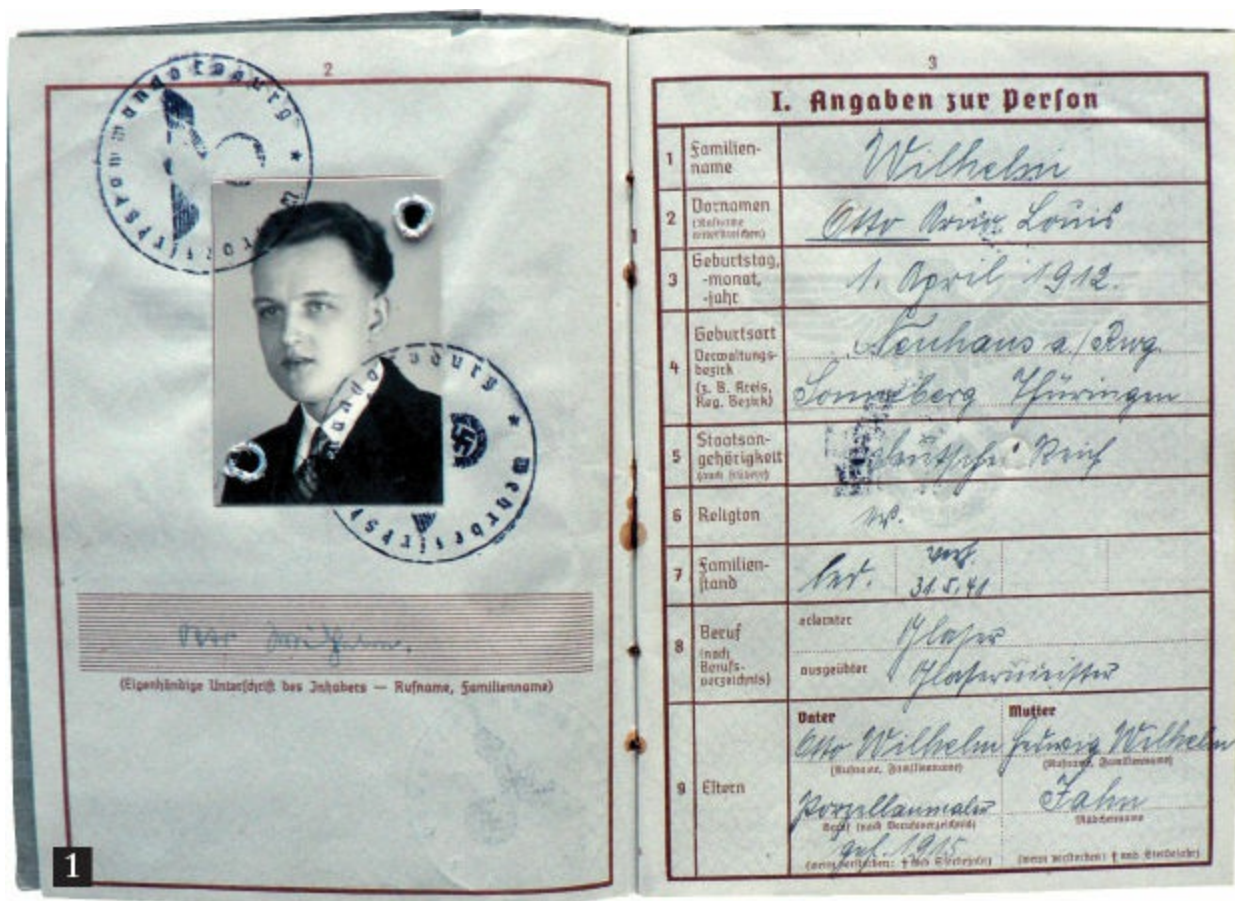 2
Wehrbezirkskommando
Wehrbezirksko
(Eigenhändige Unterschrift des Inhabers — Rufname, Familienname)
1
3
I. Angaben zur Person
1 Familien-
name
Wilhelm
2 Vornamen
(Rufname
unterstreichen)
Otto Louis
3 Geburtstag,
-monat,
-jahr
1. April 1912.
4 Geburtsort
Verwaltungs-
bezirk
(z. B. Kreis,
Reg. Bezirk)
Neuhaus a./Rwg.
Sonneberg Thüringen
5 Staatsan-
gehörigkeit
(auch frühere)
Deutsches Reich
6 Religion
7 Familien-
stand
led.
verh.
31.5.41
8 Beruf
(nach
Berufs-
verzeichnis)
erlernter
Glaser
ausgeübter
Glasermeister
9 Eltern
Vater
Otto Wilhelm
(Rufname, Familienname)
Porzellanmaler
Beruf (nach Berufsverzeichnis)
gef. 1915
(wenn verstorben: † und Sterbejahr)
Mutter
Hedwig Wilhelm
(Rufname, Familienname)
Jahn
Mädchenname
(wenn verstorben: † und Sterbejahr)